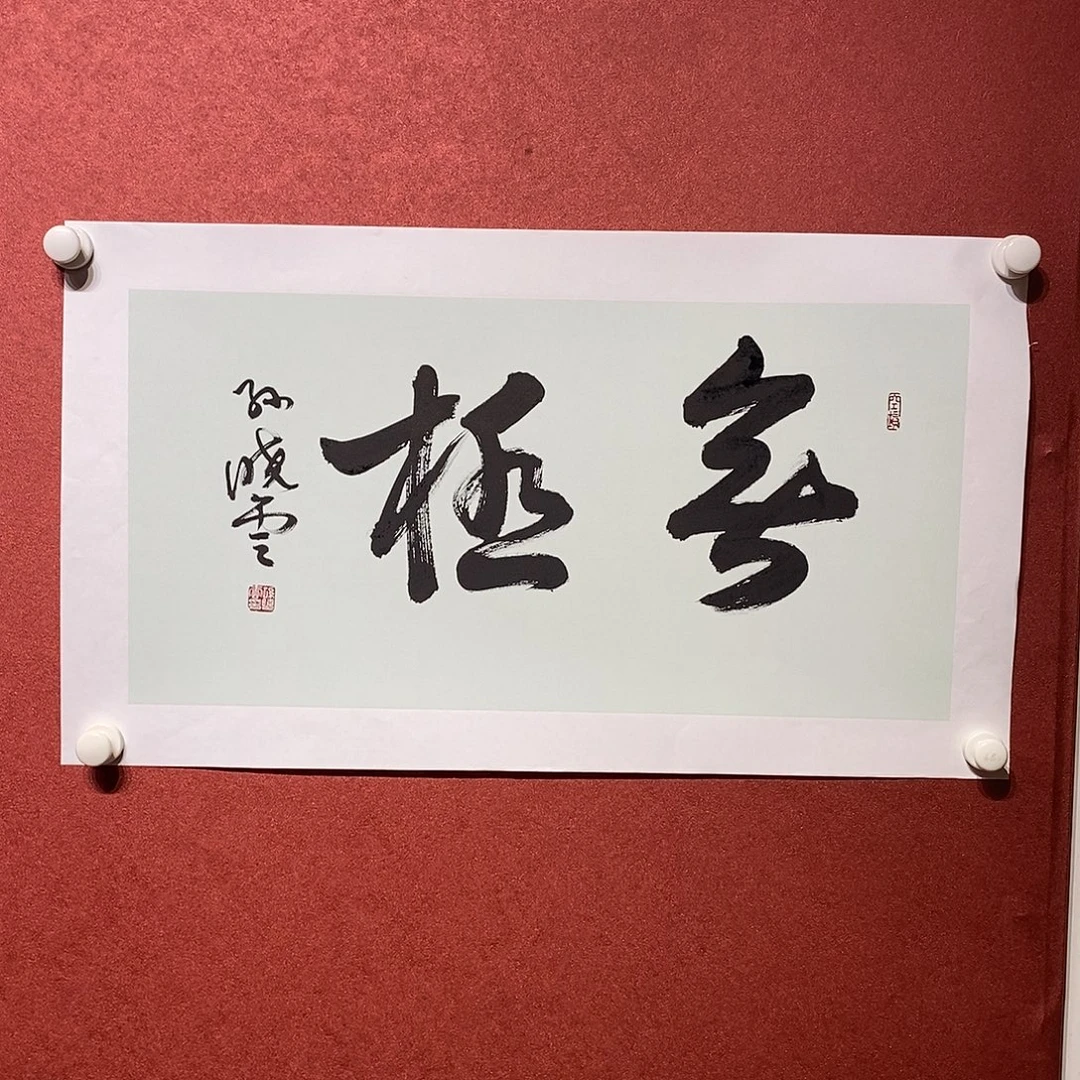 無極
孫曉雲